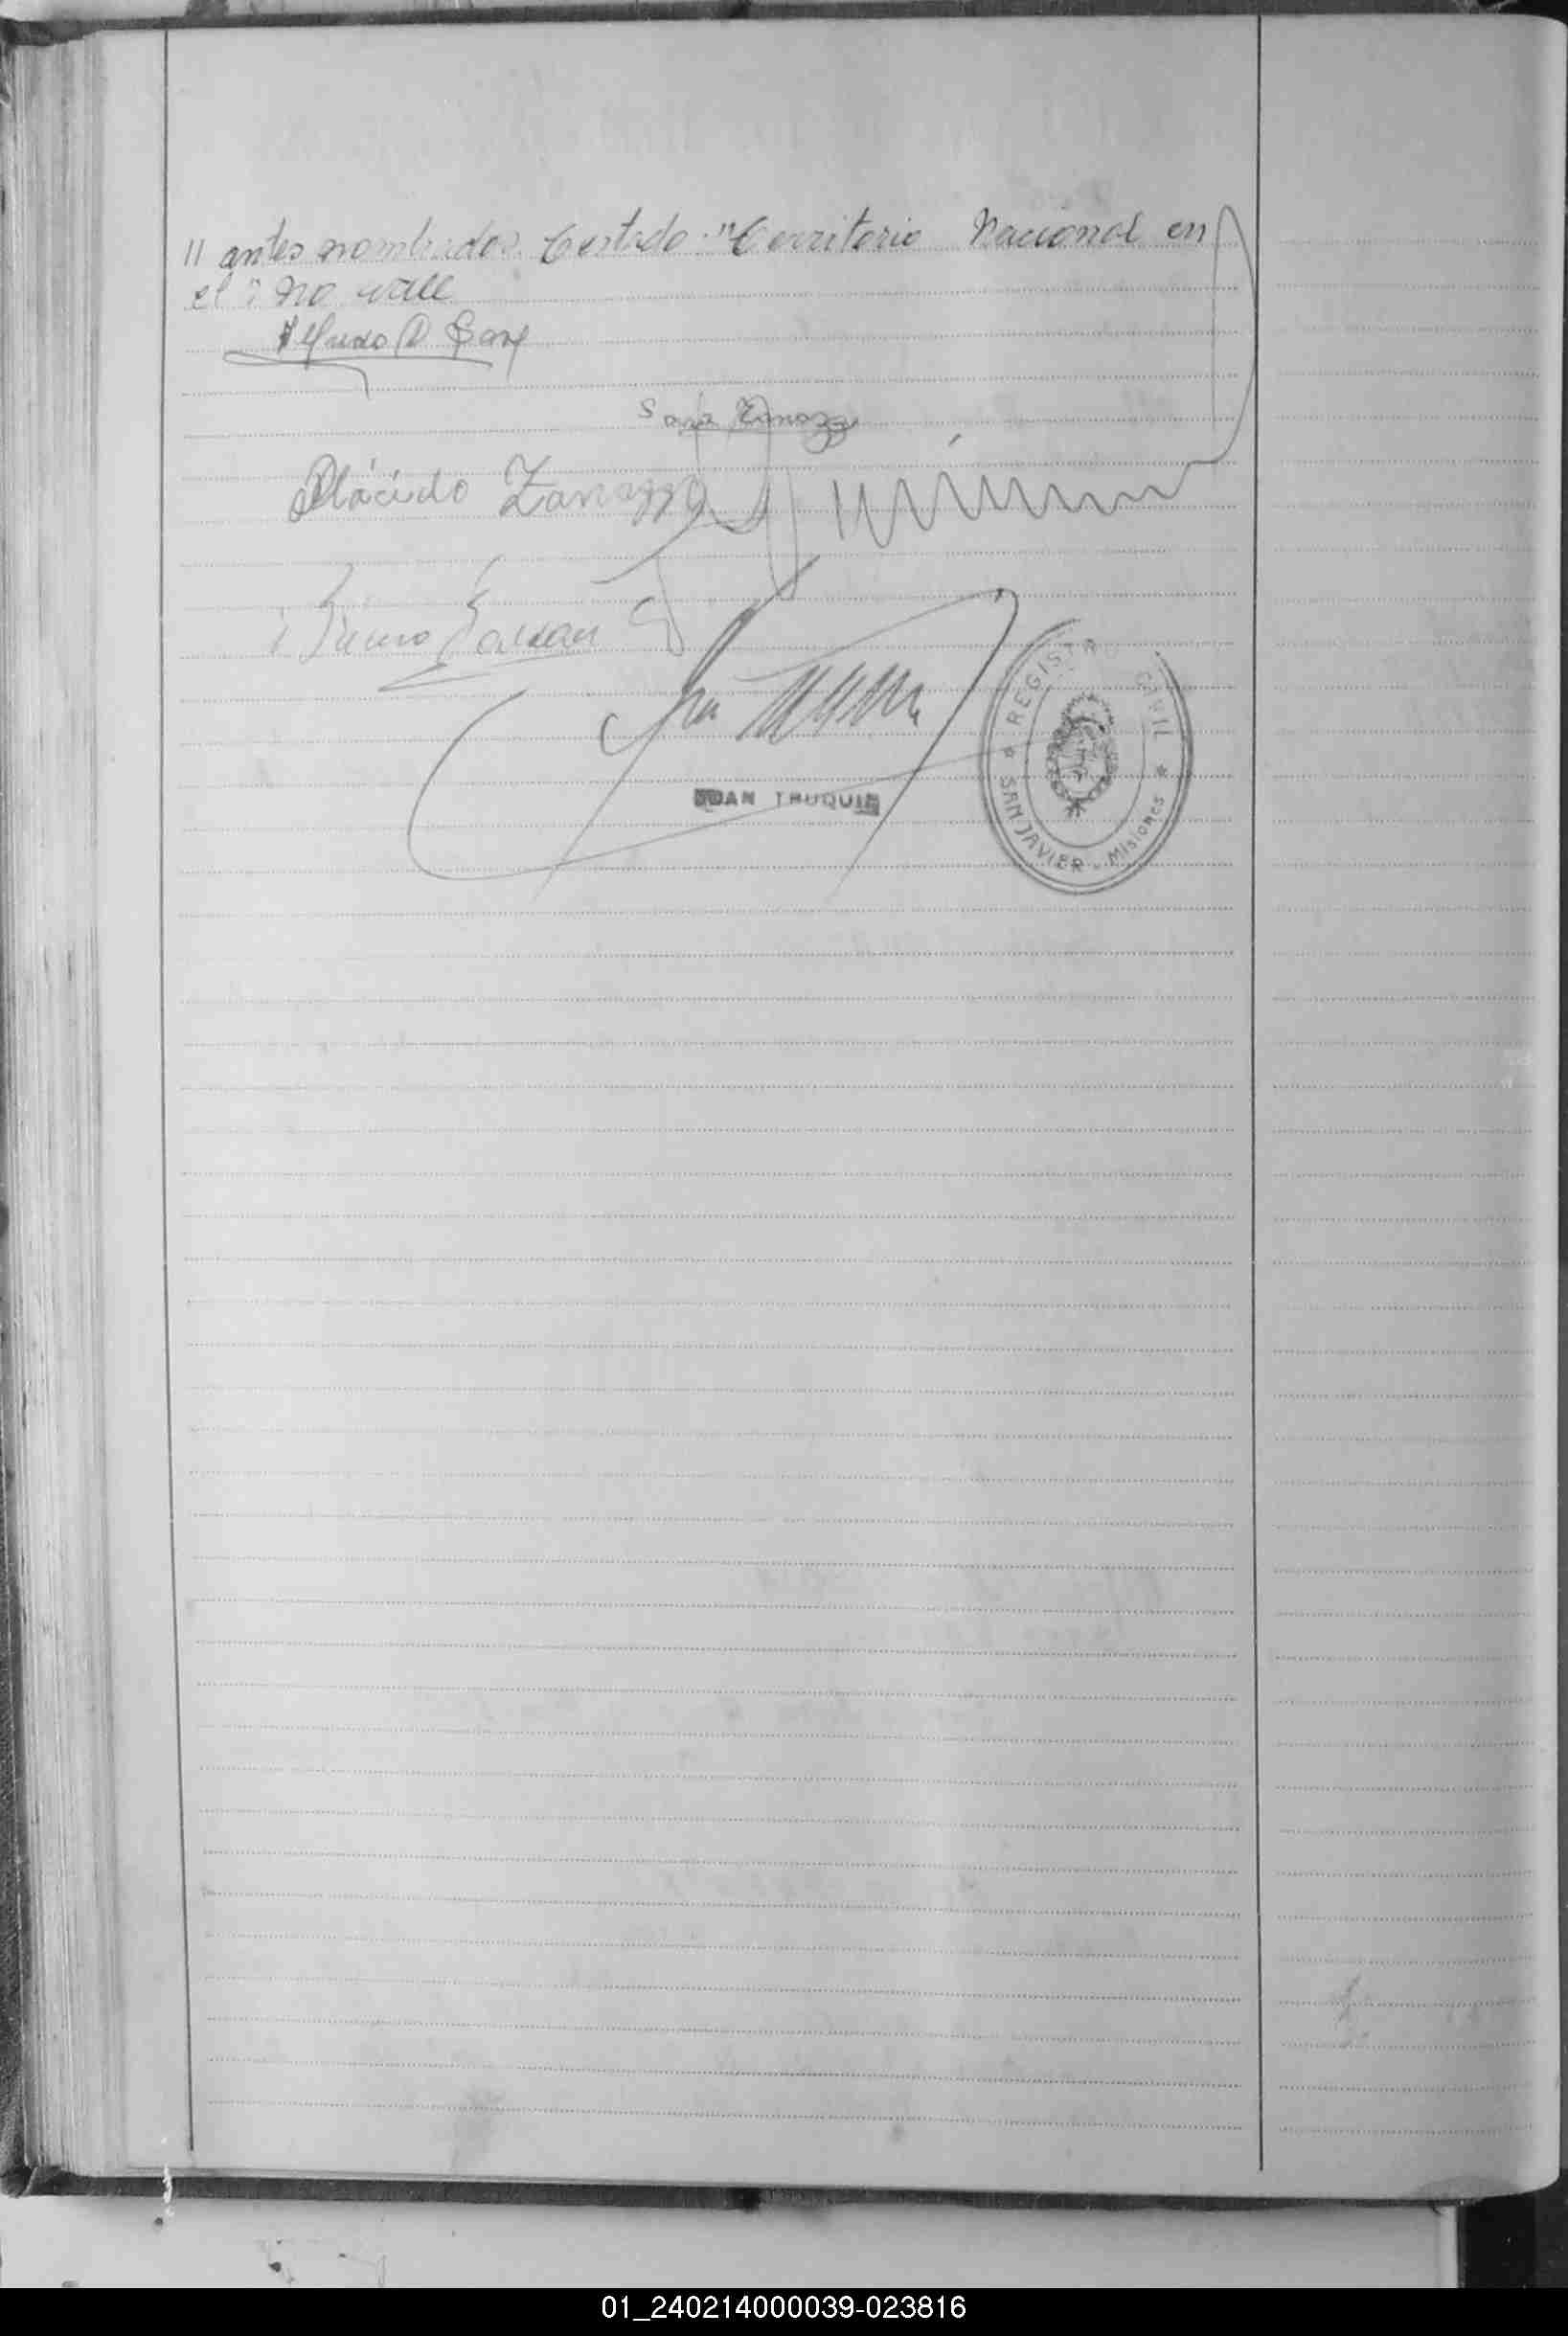 " antes nombrados. Testado: "Territorio Nacional en
el": no vale
Alfredo
Sara Zanazzi
Plácido Zanazzi
Bruno
JUAN TRUQUIN
REGISTRO CIVIL
SAN JAVIER - Misiones
01_240214000039-023816